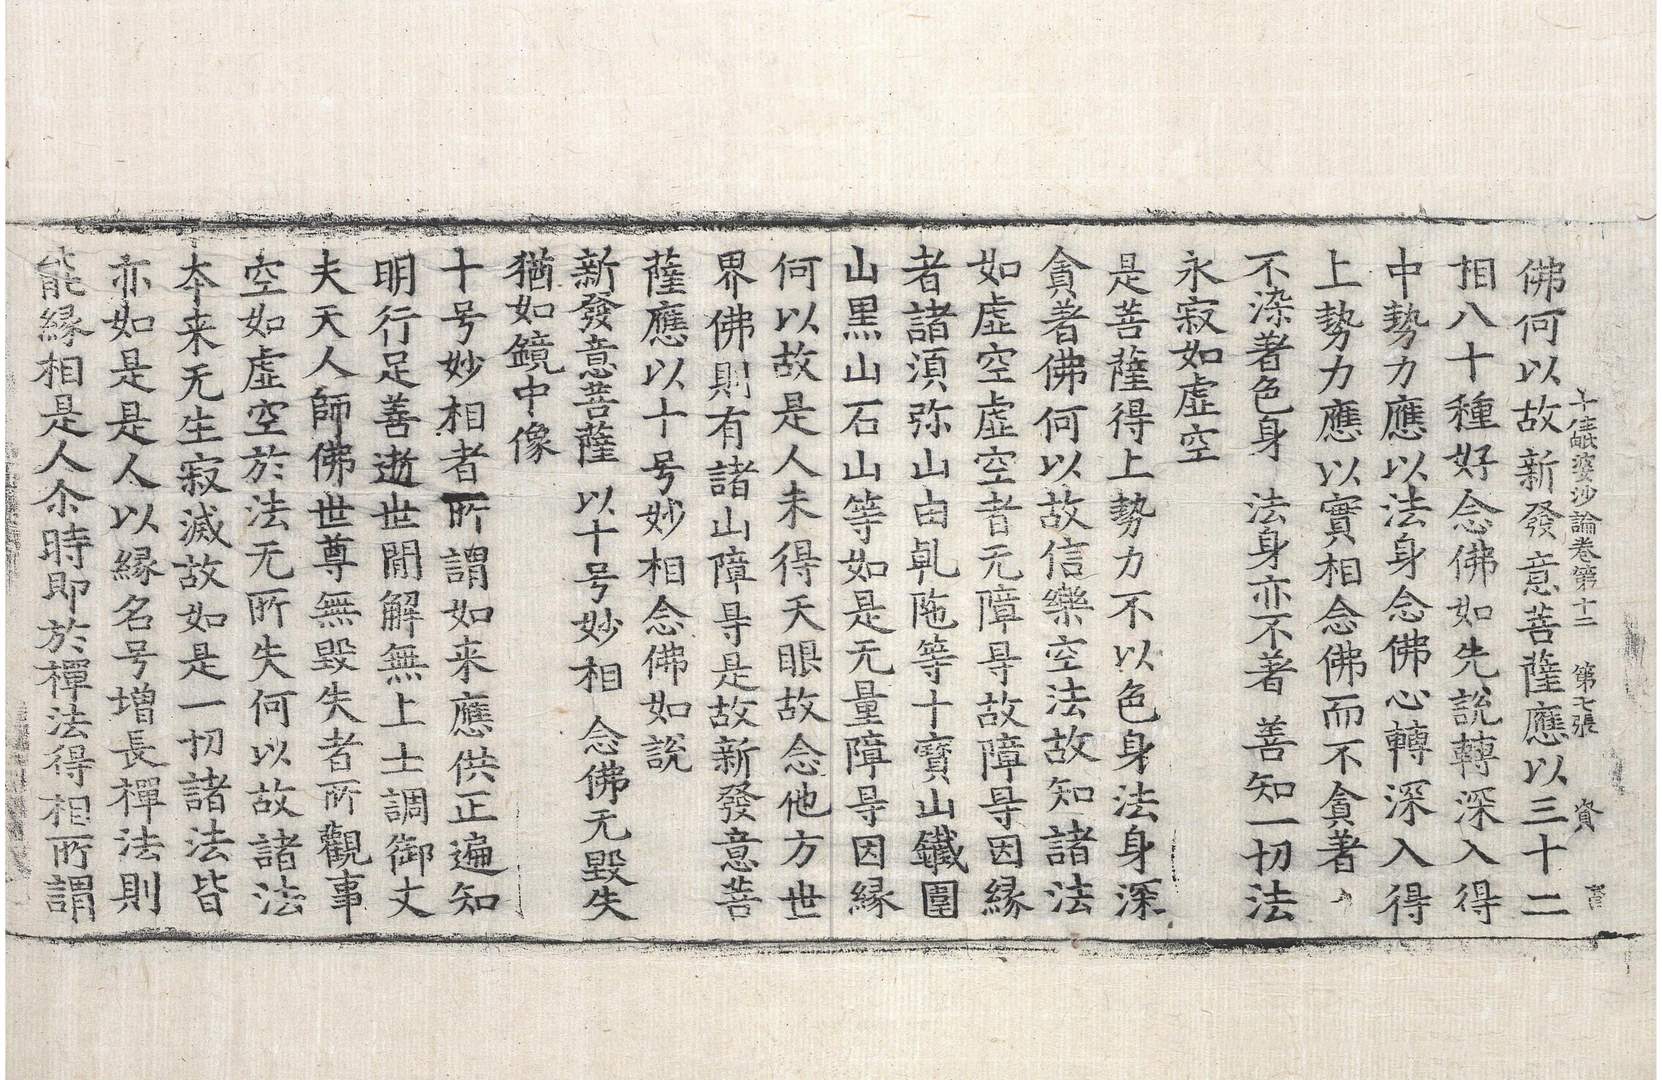 十住毗婆沙論卷第十二 第七張 資
佛何以故新發意菩薩應以三十二
相八十種好念佛如先說轉深入得
中勢力應以法身念佛心轉深入得
上勢力應以實相念佛而不貪著
不染著色身 法身亦不著 善知一切法
永寂如虛空
是菩薩得上勢力不以色身法身深
貪著佛何以故信樂空法故知諸法
如虛空虛空者无障㝵故障㝵因緣
者諸須弥山由乹陁等十寶山鐵圍
山黑山石山等如是无量障㝵因緣
何以故是人未得天眼故念他方世
界佛則有諸山障㝵是故新發意菩
薩應以十号妙相念佛如說
新發意菩薩 以十号妙相 念佛无毀失
猶如鏡中像
十号妙相者所謂如来應供正遍知
明行足善逝世閒解無上士調御丈
夫天人師佛世尊無毀失者所觀事
空如虛空於法无所失何以故諸法
夲来无生寂滅故如是一切諸法皆
亦如是是人以緣名号增長禪法則
能緣相是人尒時即於禪法得相所謂